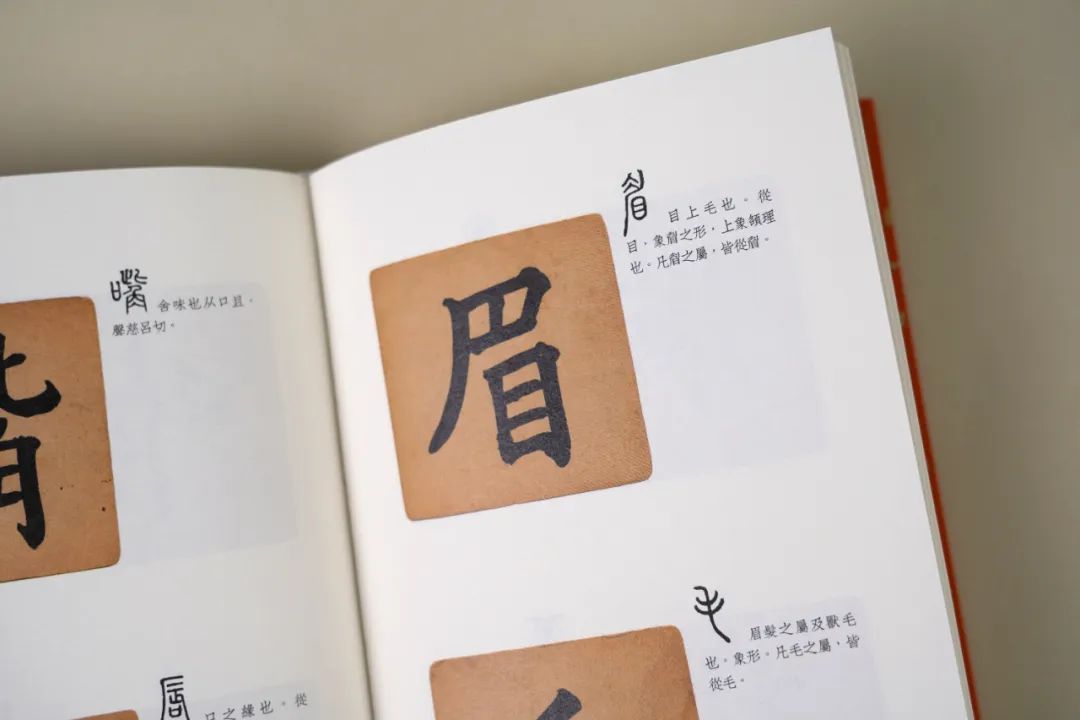 嘴
含味也从口且。
聲慈呂切。
脣
口之緣也。從
眉
眉
目上毛也。從
目,象眉之形,上象頟理
也。凡眉之屬,皆從眉。
毛
眉髮之屬及獸毛
也。象形。凡毛之屬,皆
從毛。